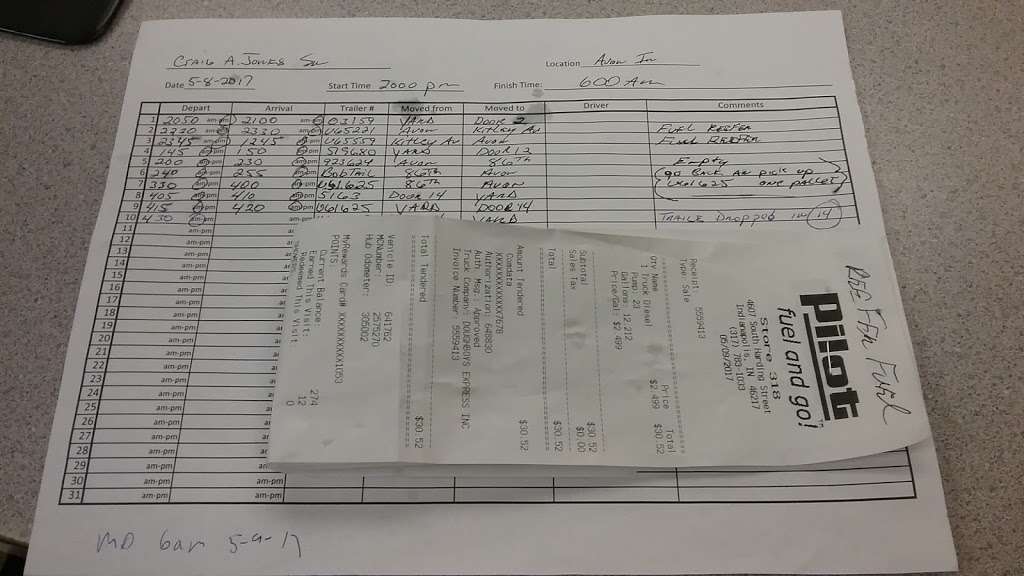 Craig A. Jones Sr
Location Avon In
Date 5-8-2017 Start Time 2000 pm Finish Time: 600 Am
Depart Arrival Trailer # Moved from Moved to Driver Comments
1 2050 am-pm 2100 am-pm 03159 YARD Door 2
2 2230 am-pm 2330 am-pm U65221 Avon Kitley Av Fuel Reefer
3 2345 am-pm 1245 am-pm U65559 Kitley Av Avon Fuel Reefer
4 145 am-pm 150 am-pm 519680 YARD Door 12
5 200 am-pm 230 am-pm 923624 Avon 86TH Empty
6 240 am-pm 255 am-pm BobTail 86TH Avon go Back An pick up
7 330 am-pm 400 am-pm U61625 86TH Avon U61625 one pallet
8 405 am-pm 410 am-pm 5163 Door 14 YARD
9 415 am-pm 420 am-pm U61625 YARD Door 14
10 430 am-pm YARD TRAILE Dropped in 14
11 am-pm
12 am-pm
13 am-pm
14 am-pm
15 am-pm
16 am-pm
17 am-pm
18 am-pm
19 am-pm
20 am-pm
21 am-pm
22 am-pm
23 am-pm
24 am-pm
25 am-pm
26 am-pm
27 am-pm
28 am-pm
29 am-pm am-pm
30 am-pm am-pm
31 am-pm am-pm
MD 6am 5-9-17
Fuel
Pilot
fuel and go!
Store 318
4607 South Harding Street
Indianapolis, IN 46217
(317) 783-1033
05/09/2017
Receipt: 5559413
Type: Sale
Qty Name Price Total
1 Truck Diesel $2.499 $30.52
Pump 21
Gallons: 12.212
Price/Gal: $2.499
Subtotal $30.52
Sales Tax $0.00
Total $30.52
Amount Tendered
Comdata $30.52
XXXXXXXXXXXX7678
Authorization: 648830
Auth Msg: Approved
Truck Company: DOUGHBOYS EXPRESS INC
Invoice Number: 5559413
Total Tendered $30.52
Vehicle ID: 641762
Hub Odometer: 305002
MyRewards Card#
POINTS
Current Balance 274
Earned This Visit 12
Redeemed This Visit 0